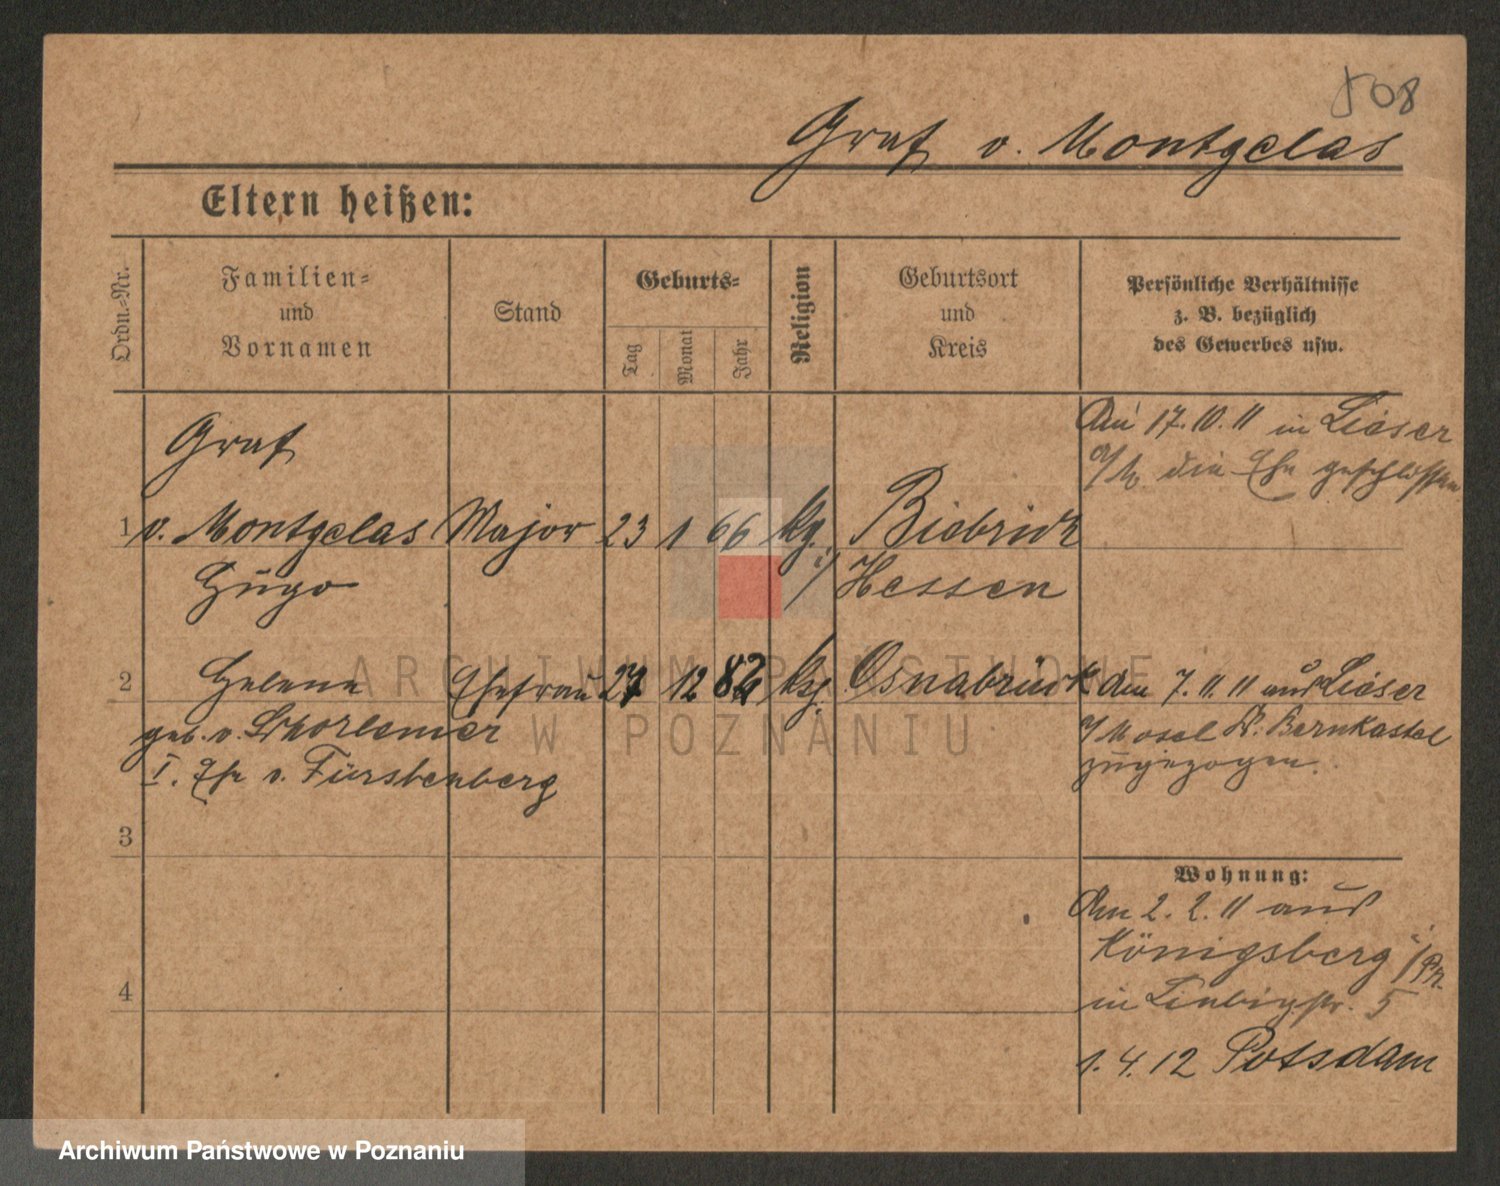 808
Graf v. Montgelas
Eltern heißen:
Ordn.-Nr.
Familien-
und
Vornamen
Stand
Geburts-
Tag
Monat
Jahr
Religion
Geburtsort
und
Kreis
Persönliche Verhältnisse
z. B. bezüglich
des Gewerbes usw.
Graf
1 v. Montgelas Major 23 1 66 kg. Biebrich
Hugo i/ Hessen
Am 17.10.11 in Lieser
a/M. die Ehe geschlossen
2 Helene Ehefrau 27 12 82 kg. Osnabrück
geb. v. Schorlemer
I. Ehe v. Fürstenberg
Am 7.11.11 aus Lieser
a/Mosel Kr. Bernkastel
zugezogen.
3
4
Wohnung:
Am 2.2.11 aus
Königsberg i/Pr.
in 5
1.4.12 Potsdam
ARCHIWUM PAŃSTWOWE
W POZNANIU
Archiwum Państwowe w Poznaniu